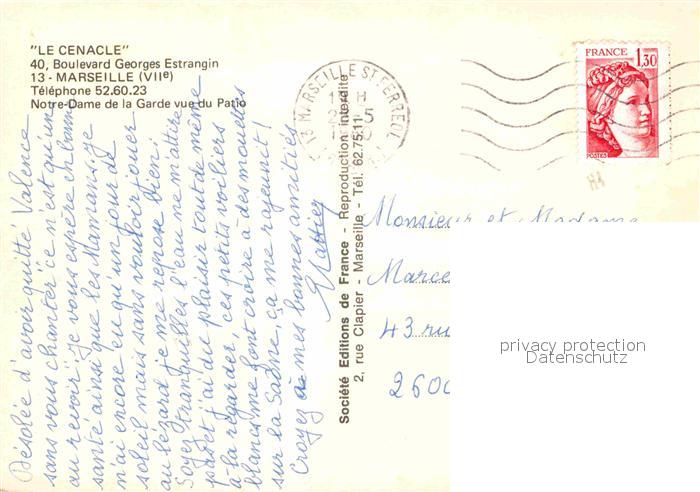 "LE CENACLE"
40, Boulevard Georges Estrangin
13 - MARSEILLE (VIIe)
Téléphone 52.60.23
Notre-Dame de la Garde vue du Patio
Désolée d'avoir quitté Valence
sans vous chanter "ce n'est qu'un
au revoir", je vous espère en bonne
santé ainsi que les Mamans. je
n'ai encore eu qu'un jour de
soleil mais sans vouloir jouer
au lézard je me repose bien.
Soyez tranquilles l'eau ne m'attire
pas et j'ai du plaisir tout de même
à la regarder, ces petits voiliers
blancs me font croire à des mouettes
sur la Saône, ça me rajeunit !
Croyez à mes bonnes amitiés
Société Editions de France - Reproduction interdite
2, rue Clapier - Marseille - Tél. 62.75.11
13 MARSEILLE ST FERREOL
FRANCE
1,30
POSTES
Monsieur et Madame
Marce
43 ru
2600
privacy protection
Datenschutz